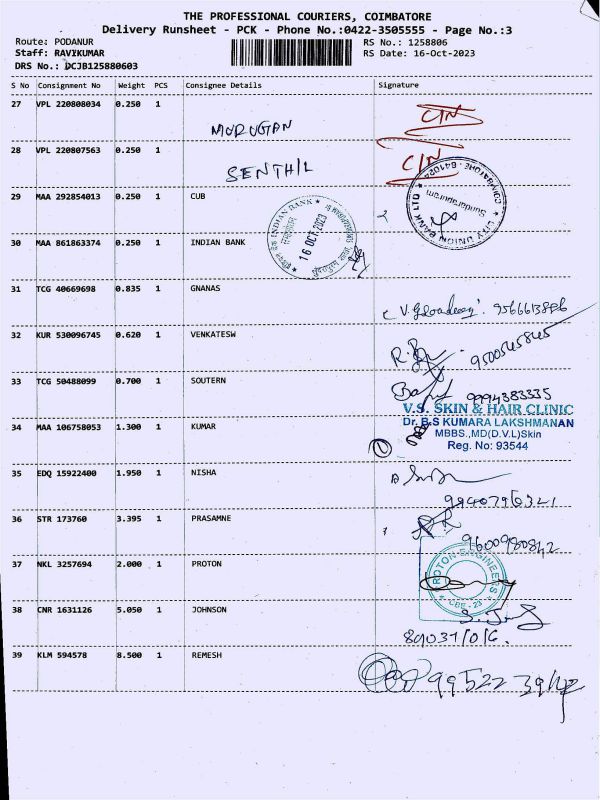 THE PROFESSIONAL COURIERS, COIMBATORE
Delivery Runsheet - PCK - Phone No.:0422-3505555 - Page No.:3
Route: PODANUR RS No.: 1258806
Staff: RAVIKUMAR RS Date: 16-Oct-2023
DRS No.: DCJB125880603
S No Consignment No Weight PCS Consignee Details Signature
27 VPL 220808034 0.250 1 MURUGAN
28 VPL 220807563 0.250 1 SENTHIL
29 MAA 292854013 0.250 1 CUB
CITY UNION BANK LTD
COIMBATORE - 641024
Sundarapuram
30 MAA 861863374 0.250 1 INDIAN BANK
INDIAN BANK
16 OCT 2023
31 TCG 40669698 0.835 1 GNANAS
32 KUR 530096745 0.620 1 VENKATESW
9500545845
33 TCG 50488099 0.700 1 SOUTERN
9994383335
34 MAA 106758053 1.300 1 KUMAR
V.S. SKIN & HAIR CLINIC
Dr. B.S KUMARA LAKSHMANAN
MBBS.,MD(D.V.L)Skin
Reg. No: 93544
35 EDQ 15922400 1.950 1 NISHA
9940796321
36 STR 173760 3.395 1 PRASAMNE
9600980842
37 NKL 3257694 2.000 1 PROTON
PROTON ENGINEERS
CBE - 23
38 CNR 1631126 5.050 1 JOHNSON
39 KLM 594578 8.500 1 REMESH